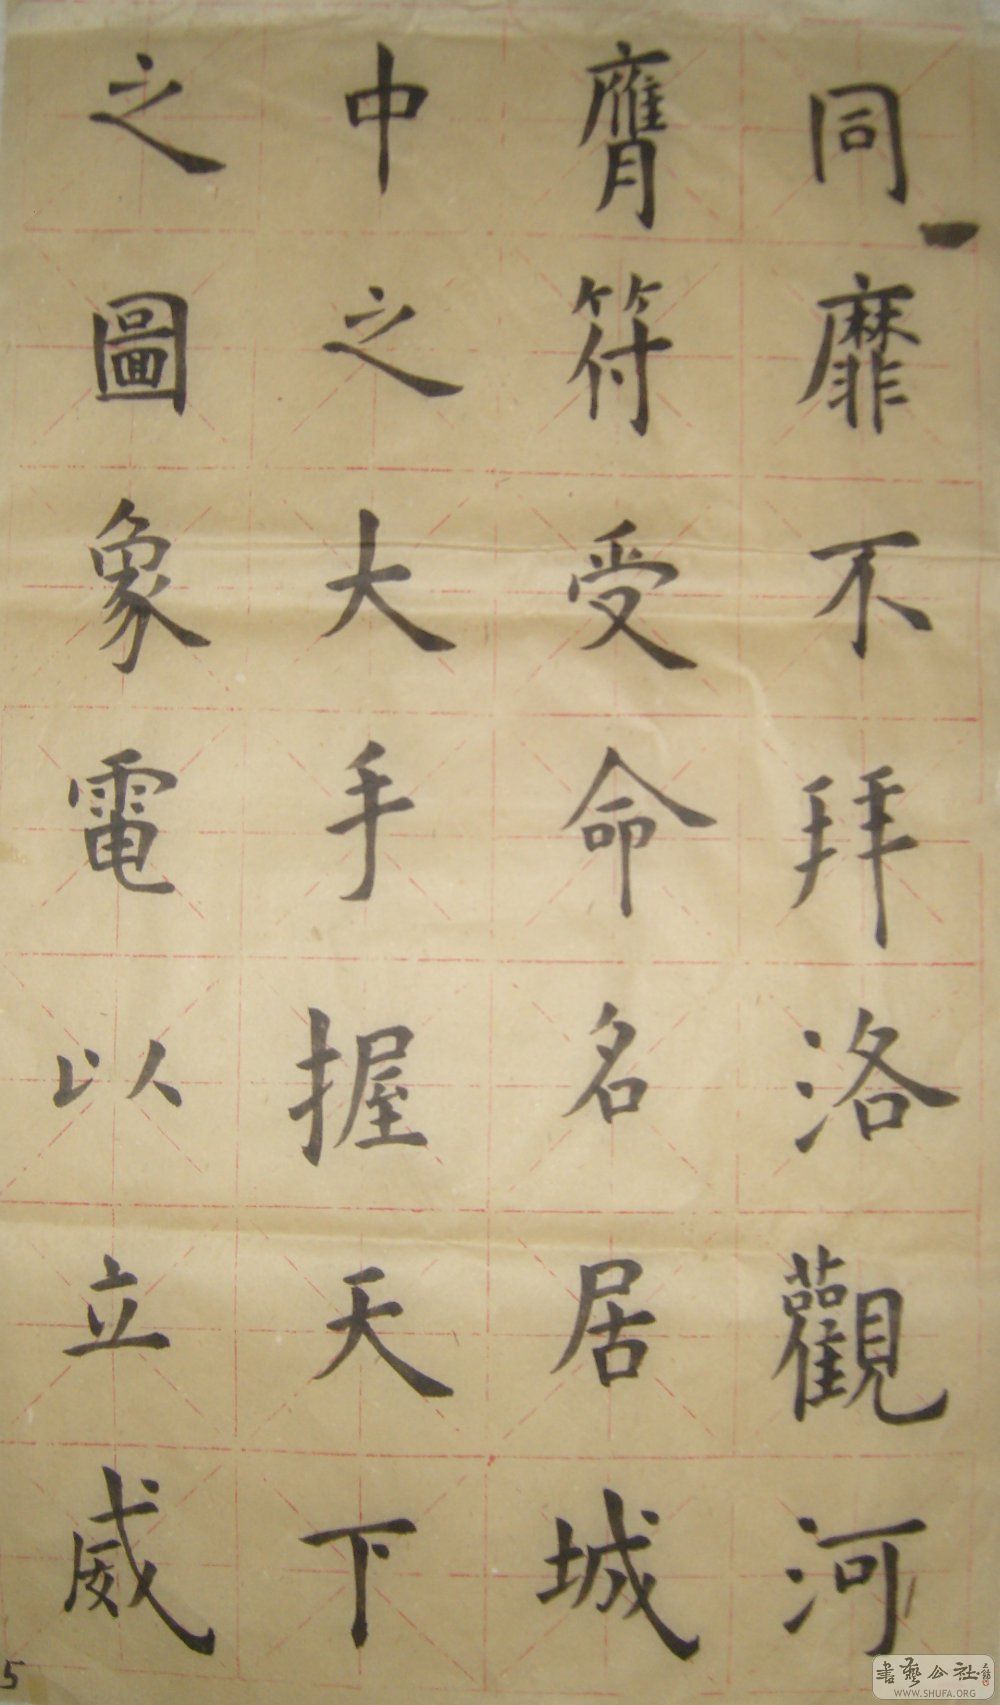 同靡不拜洛觀河
膺符受命名居城
中之大手握天下
之圖象電以立威
5
書藝公社
WWW.SHUFA.ORG